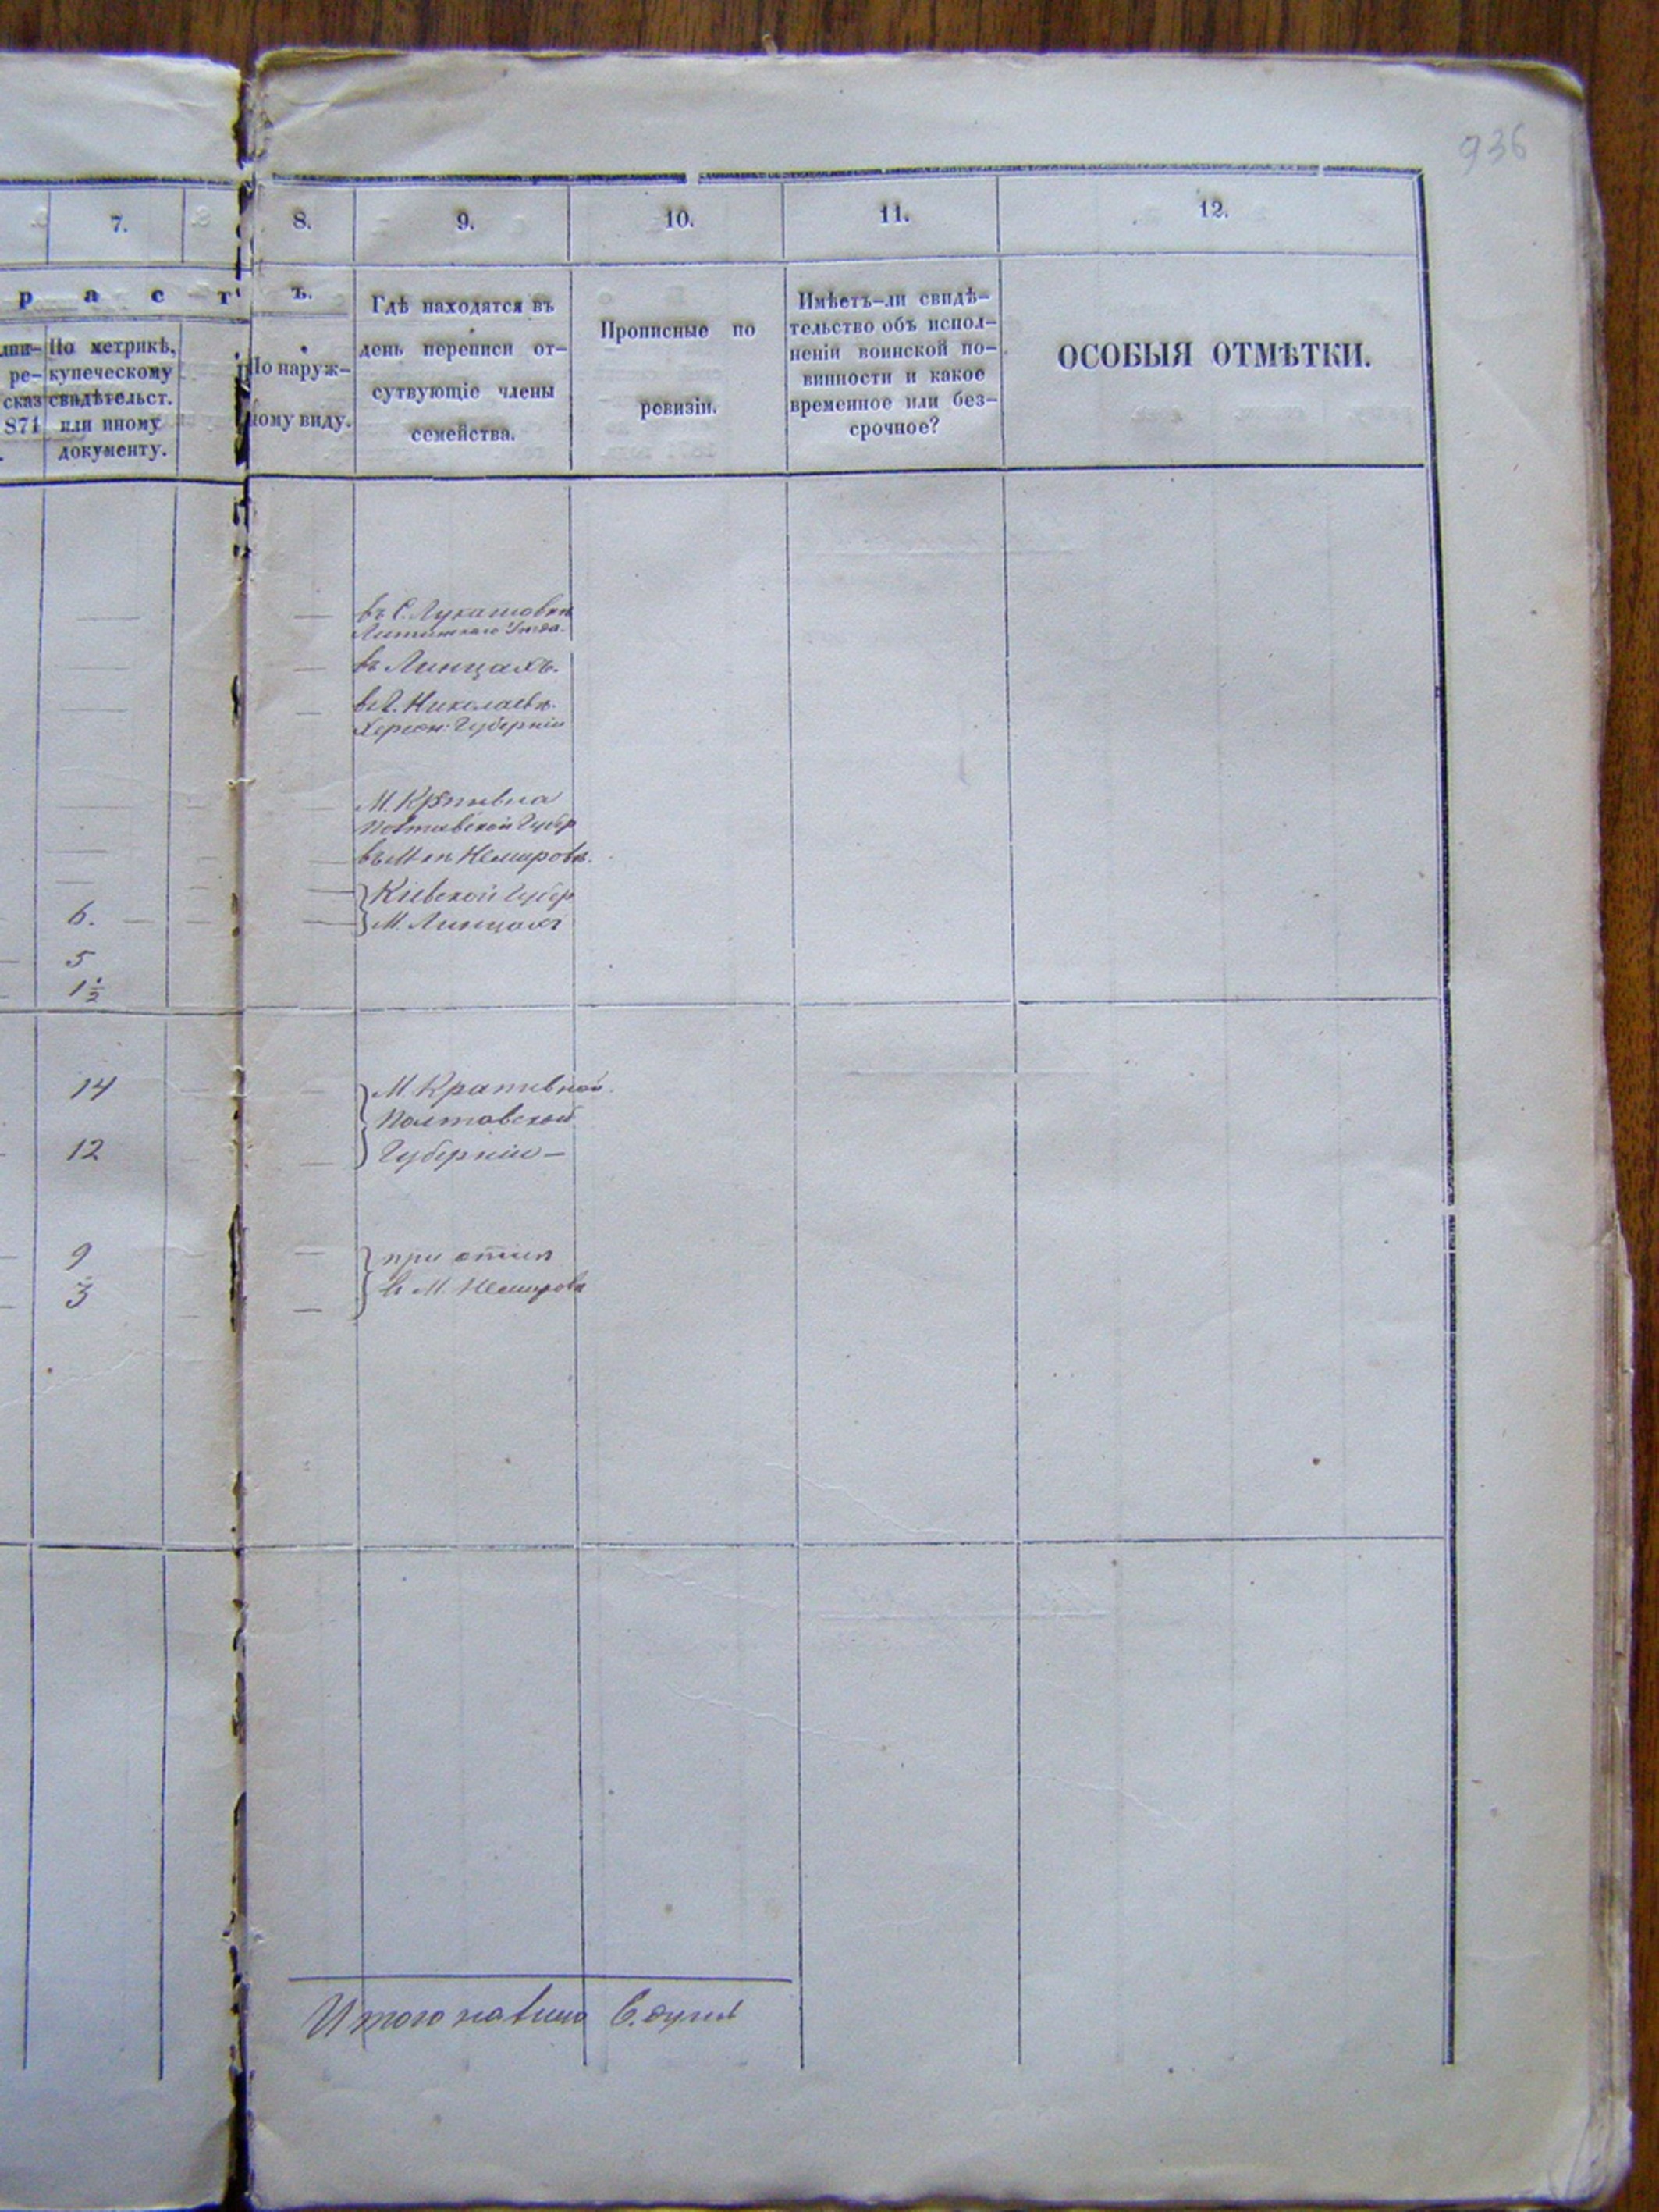 936
7.
8.
9.
10.
11.
12.
р а с т
ъ.
По метрикѣ,
купеческому
свидѣтельст.
или иному
документу.
ре-
сказ
871
По наруж-
ному виду.
Гдѣ находятся въ
день переписи от-
сутвующіе члены
семейства.
Прописные по
ревизіи.
Имѣетъ-ли свидѣ-
тельство объ испол-
неніи воинской по-
винности и какое
временное или без-
срочное?
ОСОБЫЯ ОТМѢТКИ.
въ С. Лукашовкѣ
Литинскаго Уѣзда.
въ Линцахъ.
въ Г. Николаевѣ.
Херсон: Губерніи
М.
Полтавской Губер
въ М ѣ Немировѣ.
Кіевской Губер
6.
М. Линцахъ
5
1 1/2
14
М. Крапивной
Полтавской
12
Губерніи —
9
при отцѣ
3
в М. Немировѣ
Итого 6. душъ